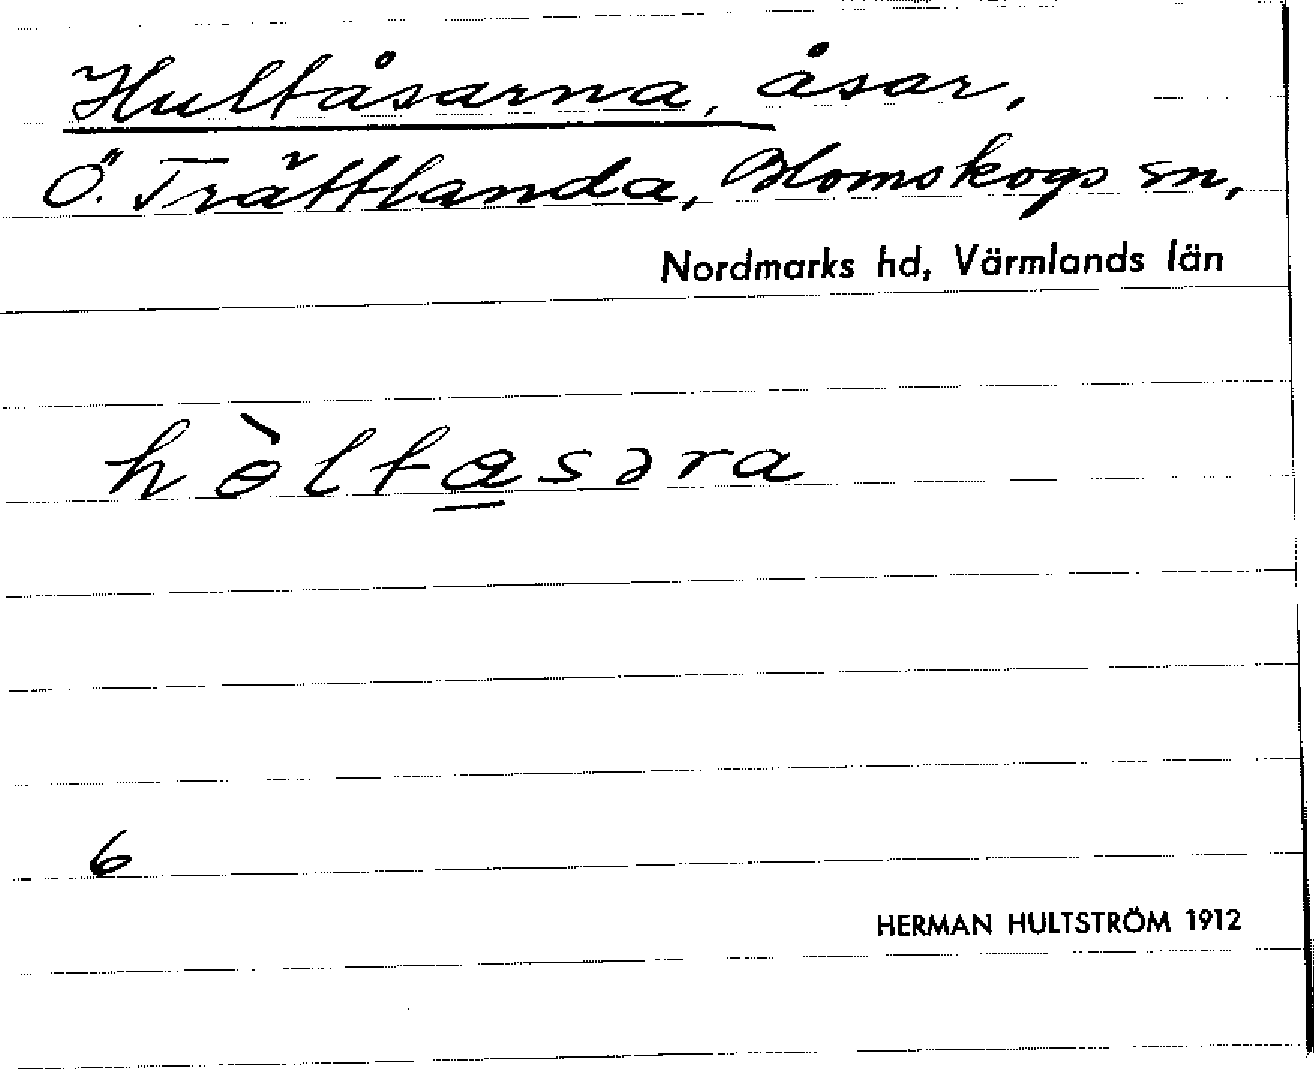 Hultåsarna, åsar,
Ö. Trättlanda, Blomskogs sn,
Nordmarks hd, Värmlands län
hɵ̀ltɑ̱səra
6
HERMAN HULTSTRÖM 1912